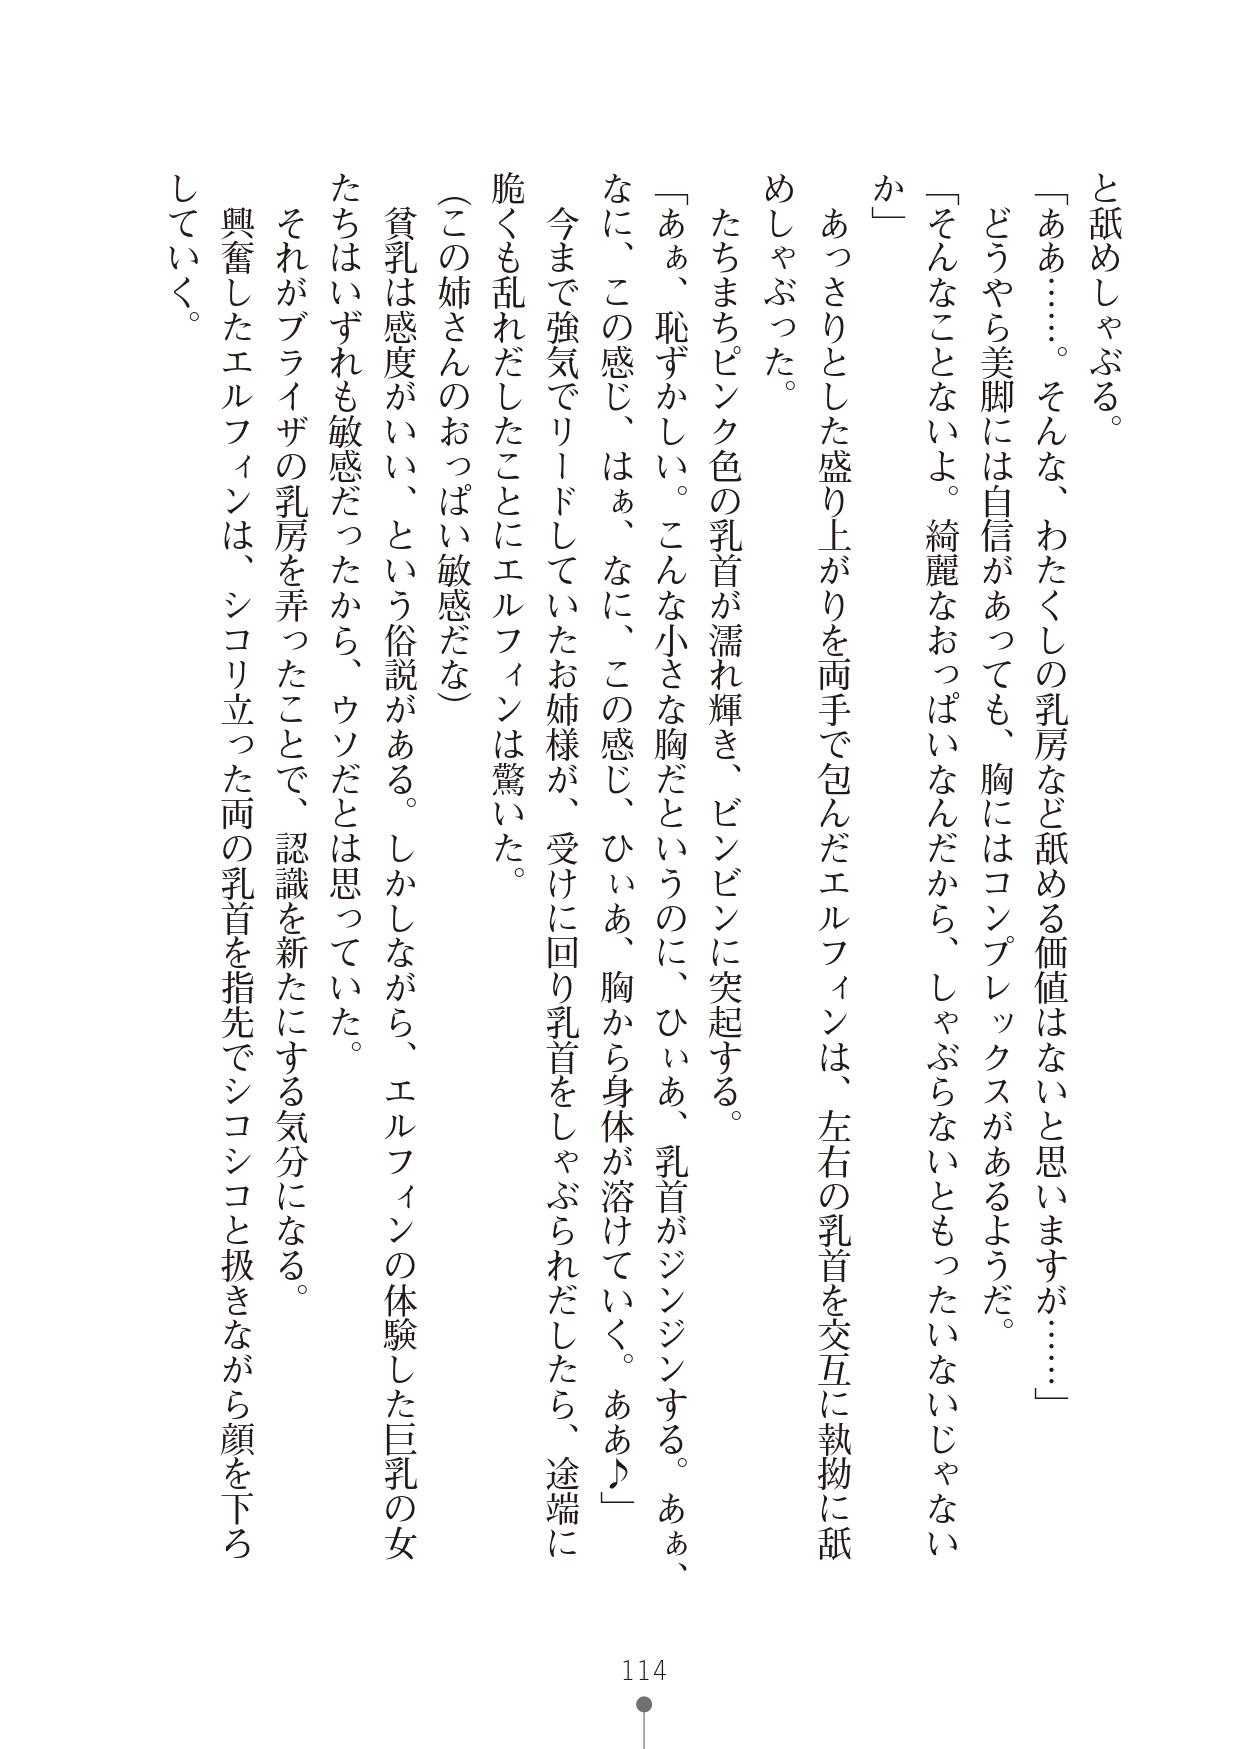 と舐めしゃぶる。
「ああ……。そんな、わたくしの乳房など舐める価値はないと思いますが……」
どうやら美脚には自信があっても、胸にはコンプレックスがあるようだ。
「そんなことないよ。綺麗なおっぱいなんだから、しゃぶらないともったいないじゃない
か」
あっさりとした盛り上がりを両手で包んだエルフィンは、左右の乳首を交互に執拗に舐
めしゃぶった。
たちまちピンク色の乳首が濡れ輝き、ビンビンに突起する。
「あぁ、恥ずかしい。こんな小さな胸だというのに、ひぃあ、乳首がジンジンする。あぁ、
なに、この感じ、はぁ、なに、この感じ、ひぃあ、胸から身体が溶けていく。ああ♪」
今まで強気でリードしていたお姉様が、受けに回り乳首をしゃぶられだしたら、途端に
脆くも乱れだしたことにエルフィンは驚いた。
（この姉さんのおっぱい敏感だな）
貧乳は感度がいい、という俗説がある。しかしながら、エルフィンの体験した巨乳の女
たちはいずれも敏感だったから、ウソだとは思っていた。
それがブライザの乳房を弄ったことで、認識を新たにする気分になる。
興奮したエルフィンは、シコリ立った両の乳首を指先でシコシコと扱きながら顔を下ろ
していく。
114